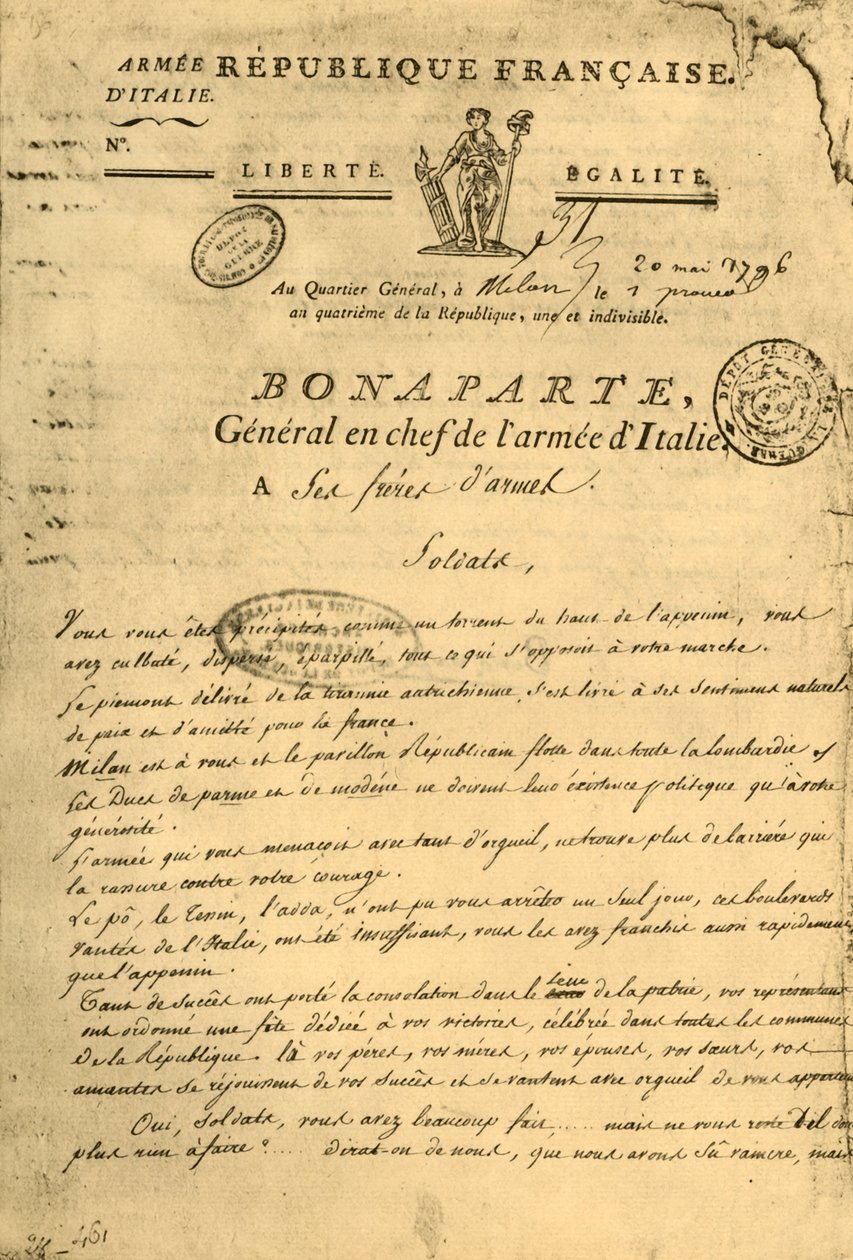 ARMÉE RÉPUBLIQUE FRANÇAISE.
D'ITALIE.
N°.
LIBERTÉ. ÉGALITÉ.
31
20 mai 1796
Au Quartier Général, à Milan le 1 prair
an quatrième de la République, une et indivisible.
DÉPÔT DE LA GUERRE
DÉPÔT GÉNÉRAL DE LA GUERRE
BONAPARTE,
Général en chef de l'armée d'Italie.
A Ses fréres d'armes.
Soldats,
Vous vous êtes précipités comme un torrent du haut de l'appenin, vous
avez culbuté, dispersé, éparpillé, tout ce qui s'opposoit à votre marche.
Le piemont délivré de la tirannie autrichienne, s'est livré à ses sentimens naturels
de paix et d'amitié pour la france.
Milan est à vous et le pavillon Républicain flotte dans toute la lombardie,
Les Ducs de parme et de modéne ne doivent leur éxistence politique qu'à votre
générosité.
L'armée qui vous menaçoit avec tant d'orgueil, ne trouve plus de barriére qui
la rassure contre votre courage.
Le pô, le Tesin, l'adda, n'ont pu vous arrêter un seul jour, ces boulevards
vantés de l'Italie, ont été insuffisant, vous les avez franchis aussi rapidement
que l'appenin.
Tant de succès ont porté la consolation dans le sein de la patrie, vos représentans
ont ordonné une fête dédiée à vos victoires, célébrée dans toutes les communes
de la République. là vos péres, vos méres, vos épouses, vos sœurs, vos
amantes se réjouissent de vos succès et se vantent avec orgueil de vous apparten
Oui, soldats, vous avez beaucoup fait..... mais ne vous reste t'il donc
plus rien à faire?.... dirat-on de nous, que nous avons sû vaincre, mais
461